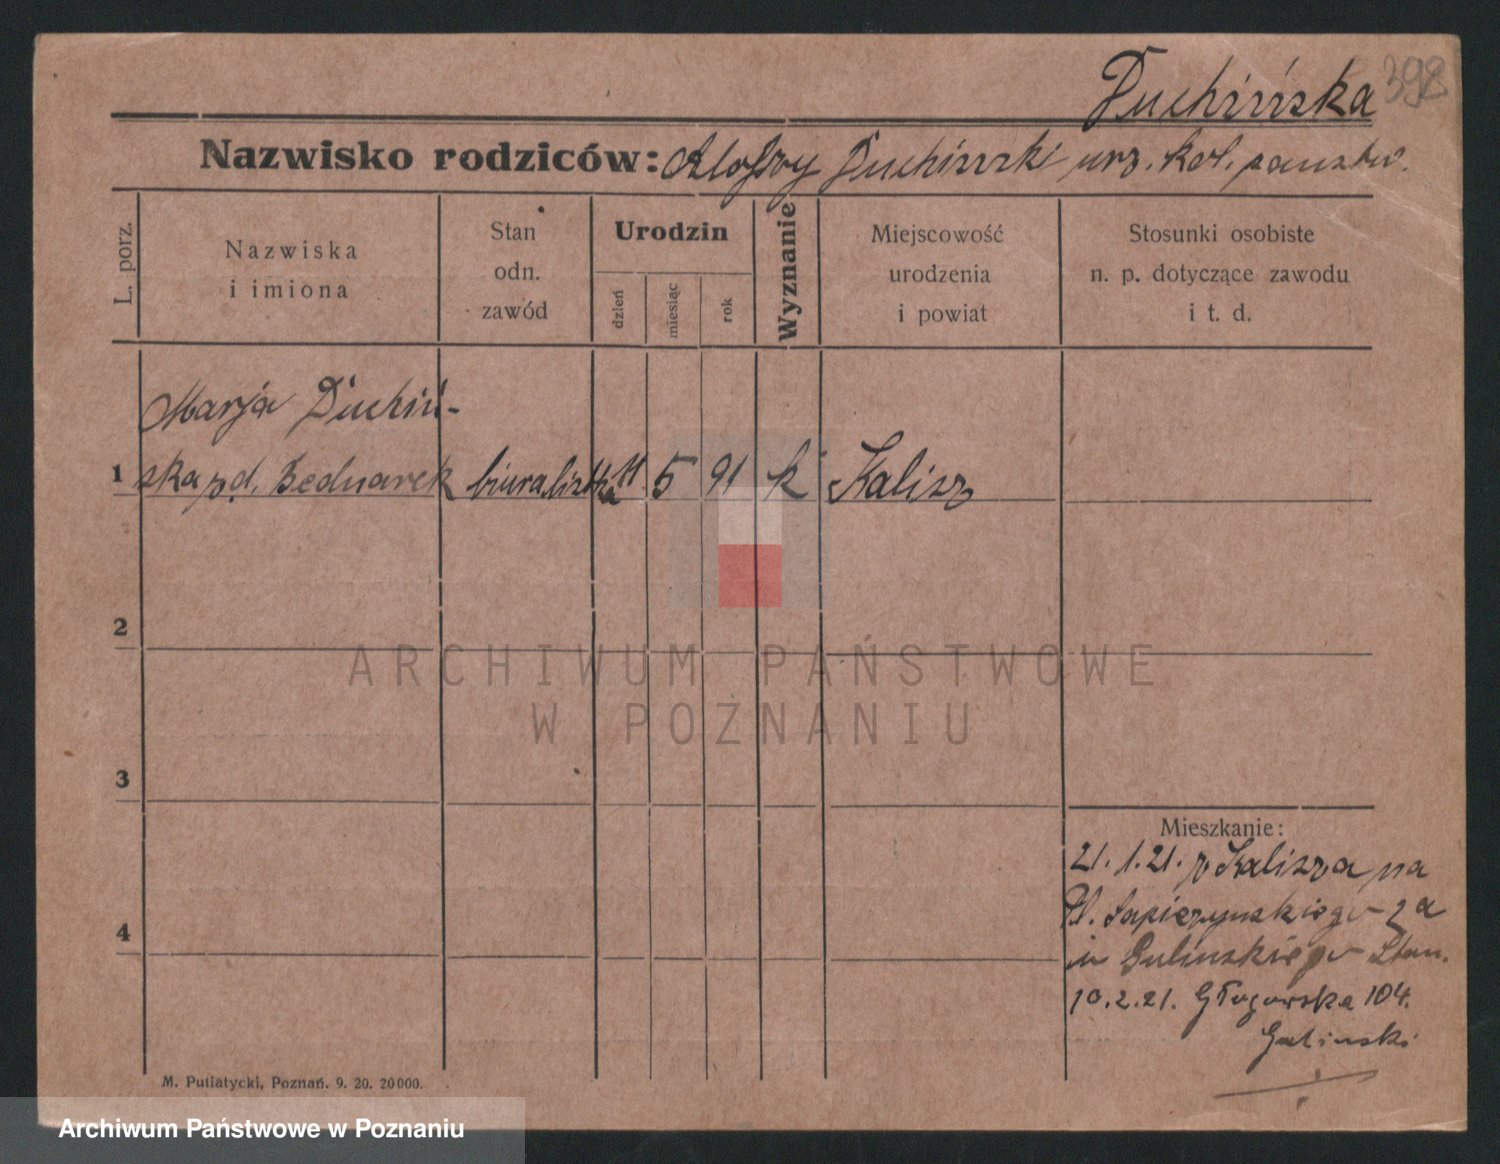 Duchińska 398
Nazwisko rodziców: Alojzy Duchiński urz. kol. państw.
L. porz.
Nazwiska
i imiona
Stan
odn.
zawód
Urodzin
dzień
miesiąc
rok
Wyznanie
Miejscowość
urodzenia
i powiat
Stosunki osobiste
n. p. dotyczące zawodu
i t. d.
Marja Duchiń-
1 ska p.d. Bednarek biuralistka 11 5 91 k Kalisz
2
ARCHIWUM PAŃSTWOWE
W POZNANIU
3
Mieszkanie:
21.1.21. z Kalisza na
Pl. Sapieżyńskiego 2a
4
u Stan.
10.2.21. Głogowska 104.
M. Putiatycki, Poznań. 9. 20. 20000.
Archiwum Państwowe w Poznaniu